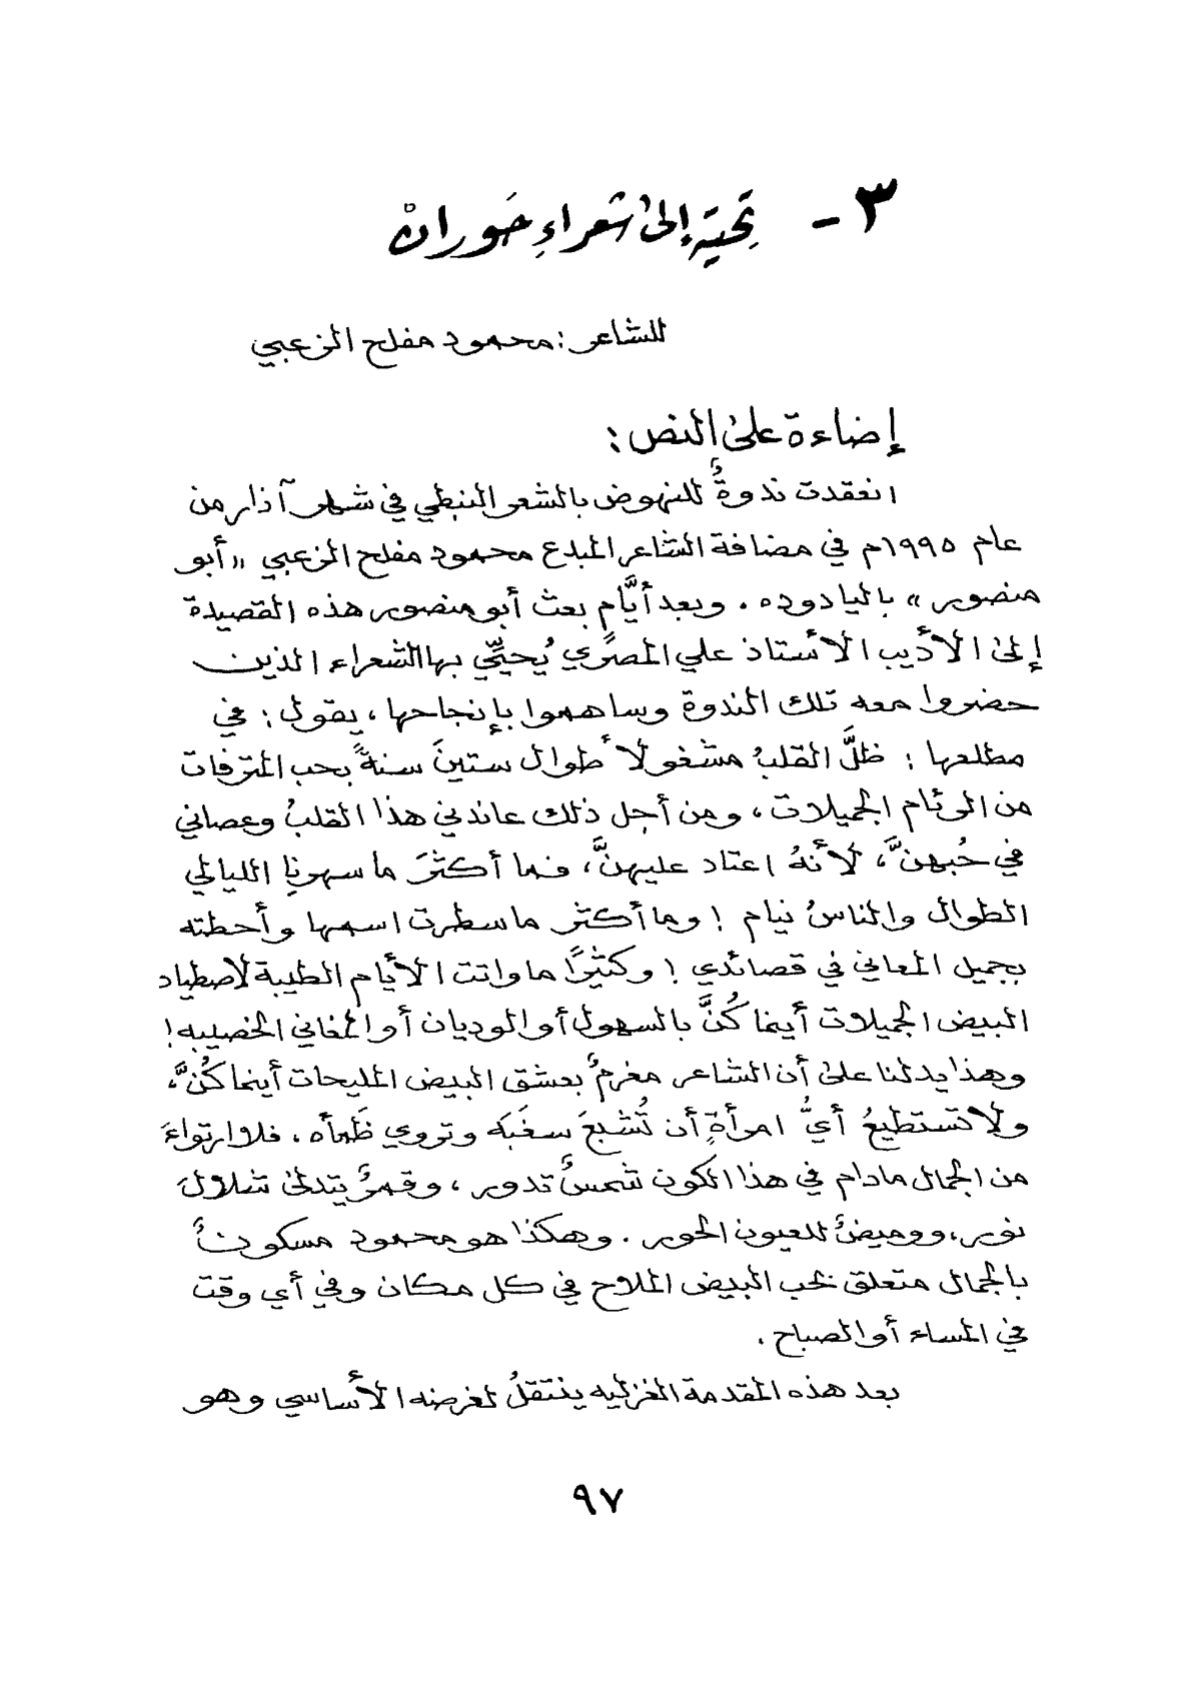 ٣ - تحيّة إلى شعراءِ حَورانْ
للشاعر : محمود مفلح الزعبي
إضاءة على النص :
انعقدت ندوةٌ للنهوض بالشعر النبطي في شهر آذار من
عام ١٩٩٥م في مضافة الشاعر المبدع محمود مفلح الزعبي «أبو
منصور» باليادوده . وبعد أيَّام بعث أبو منصور هذه القصيدة
إلى الأديب الأستاذ علي المصري يُحيِّي بها الشعراء الذين
حضروا معه تلك الندوة وساهموا بإنجاحها ، يقول : في
مطلعها : ظلَّ القلبُ مشغولاً طوال ستينَ سنةً بحب المترفات
من الوئام الجميلات ، ومن أجل ذلك عاندني هذا القلبُ وعصاني
في حُبهنَّ ، لأنهُ اعتاد عليهنَّ ، فما أكثرَ ما سهرنا الليالي
الطوال والناسُ نيام ! وما أكثر ما سطرت اسمها وأحطته
بجميل المعاني في قصائدي ! وكثيرًا ما واتت الأيام الطيبة لاصطياد
البيض الجميلات أينما كُنَّ بالسهول أو الوديان أو المغاني الخصيبه !
وهذا يدلنا على أن الشاعر مغرمٌ بعشق البيض المليحات أينما كُنَّ ،
ولا تستطيعُ أيُّ امرأةٍ أن تُشبعَ سغَبَه وتروي ظَمأه ، فلا ارتواءَ
من الجمال مادام في هذا الكون شمسٌ تدور ، وقمرٌ يتدلى شلالَ
نور ، ووميضٌ للعيون الحور . وهكذا هو محمود مسكونٌ
بالجمال متعلق بحب البيض الملاح في كل مكان وفي أي وقت
في المساء أو الصباح .
بعد هذه المقدمة الغزليه ينتقلُ لغرضه الأساسي وهو
٩٧